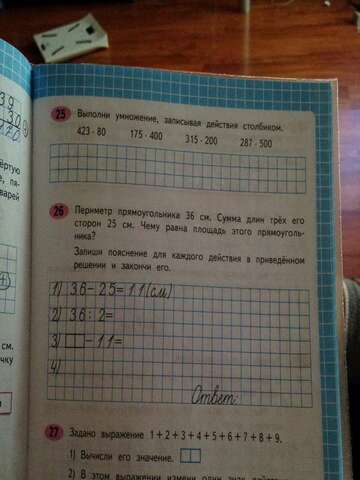 25 Выполни умножение, записывая действия столбиком.
423 · 80 175 · 400 315 · 200 287 · 500
26 Периметр прямоугольника 36 см. Сумма длин трёх его
сторон 25 см. Чему равна площадь этого прямоуголь-
ника?
Запиши пояснение для каждого действия в приведённом
решении и закончи его.
1) 36 - 25 = 11 (см)
2) 36 : 2 =
3) - 11 =
4)
Ответ:
27 Задано выражение 1 + 2 + 3 + 4 + 5 + 6 + 7 + 8 + 9.
1) Вычисли его значение.
2) В этом выражении измени один знак